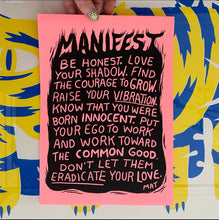 MANIFEST
BE HONEST. LOVE
YOUR SHADOW. FIND
THE COURAGE TO GROW.
RAISE YOUR VIBRATION.
KNOW THAT YOU WERE
BORN INNOCENT. PUT
YOUR EGO TO WORK
AND WORK TOWARD
THE COMMON GOOD.
DON'T LET THEM
ERADICATE YOUR LOVE.
MAT